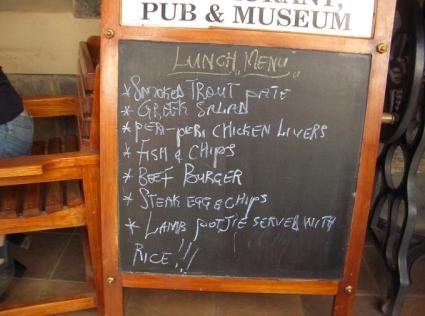 PUB & MUSEUM
LUNCH MENU
* SMOKED TROUT PATE
* GREEK SALAD
* PERI-PERI CHICKEN LIVERS
* FISH & CHIPS
* BEEF BURGER
* STEAK EGG & CHIPS
* LAMB POTJIE SERVED WITH
RICE!!!